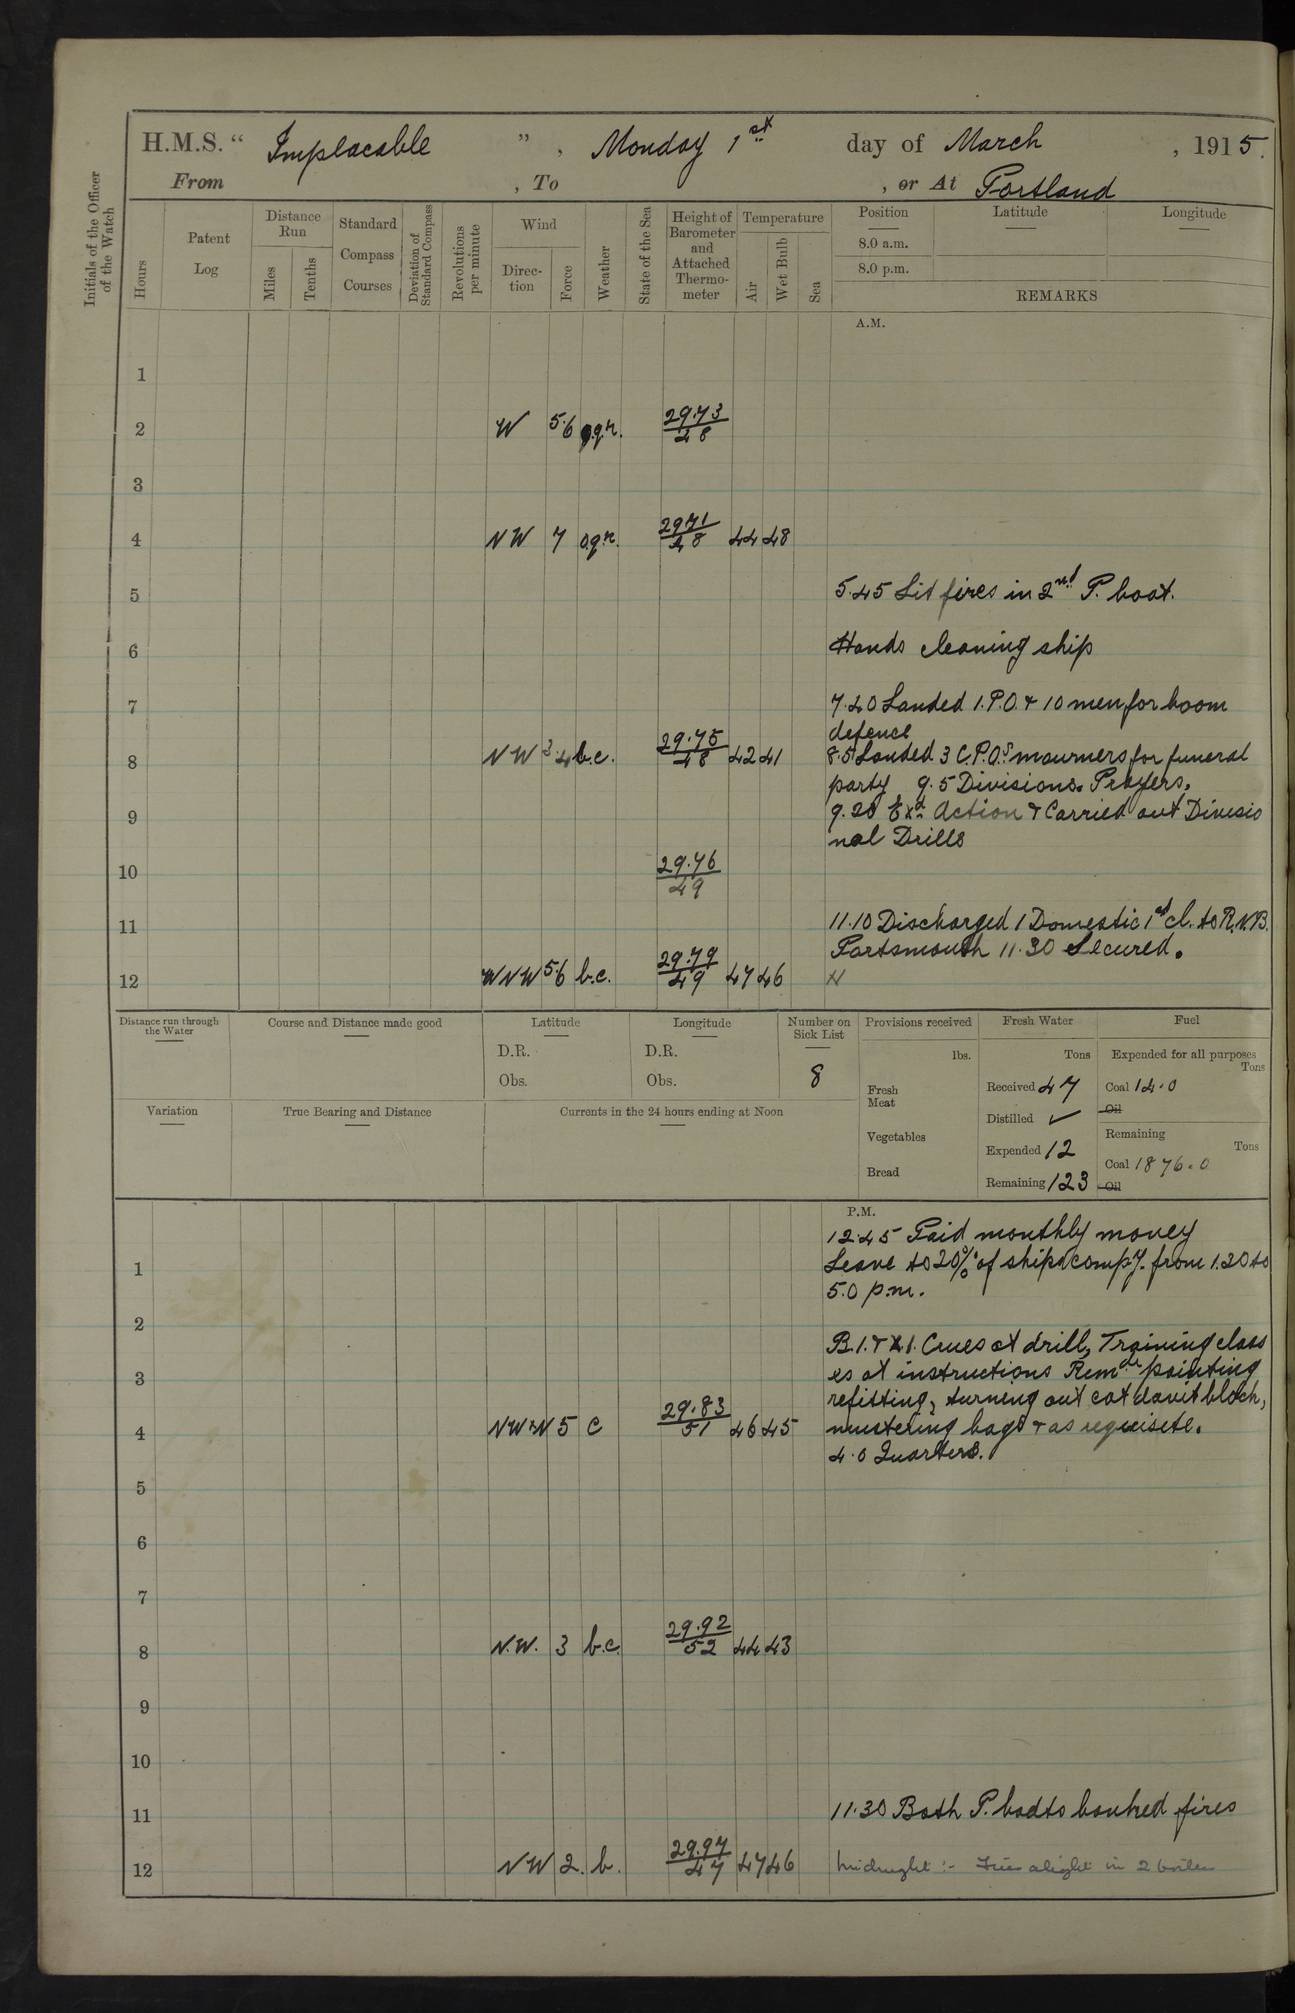 H.M.S. “ Implacable ” , Monday 1st day of March , 1915.
From , To , or At Portland
Initials of the Officer of the Watch
Hours
Patent Log
Distance Run
Miles
Tenths
Standard Compass Courses
Deviation of Standard Compass
Revolutions per minute
Wind
Direction
Force
Weather
State of the Sea
Height of Barometer and Attached Thermometer
Temperature
Air
Wet Bulb
Sea
Position Latitude Longitude
8.0 a.m.
8.0 p.m.
REMARKS
A.M.
1
2 W 5.6 o.q.r. 29.73/48
3
4 NW 7 o.q.r. 29.71/48 44 48
5 5.45 Lit fires in 2nd P. boat.
6 Hands cleaning ship
7 7.40 Landed 1.P.O. & 10 men for boom
defence
8 NW 3.4 b.c. 29.75/48 42 41 8.5 Landed 3 C.P.O.s mourners for funeral
party 9.5 Divisions. Prayers.
9 9.20 Exd. Action & Carried out Divisio
nal Drills
10 29.76/49
11 11.10 Discharged 1 Domestic 1st cl. to R.N.B.
Portsmouth 11.30 Secured.
12 WNW 5.6 b.c. 29.79/49 47 46
Distance run through the Water
Course and Distance made good
Latitude
D.R.
Obs.
Longitude
D.R.
Obs.
Number on Sick List
8
Provisions received
lbs.
Fresh Meat
Vegetables
Bread
Fresh Water
Tons
Received 47
Distilled ✓
Expended 12
Remaining 123
Fuel
Expended for all purposes
Tons
Coal 14.0
Oil
Remaining
Tons
Coal 1876.0
Oil
Variation
True Bearing and Distance
Currents in the 24 hours ending at Noon
P.M.
12.45 Paid monthly money
1 Leave to 20% of ships compy. from 1.20 to
5.0 p.m.
2 B.1. & X.1. Crues at drill, Training class
3 es at instructions Remdr painting
refitting, turning out cat davit block,
4 NW'N 5 c 29.83/51 46 45 mustering bags & as requisete.
4.0 Quarters.
5
6
7
8 N.W. 3 b.c. 29.92/52 44 43
9
10
11 11.30 Both P. boats banked fires
12 NW 2. b. 29.97/47 47 46 Midnight :- Fires alight in 2 boilers